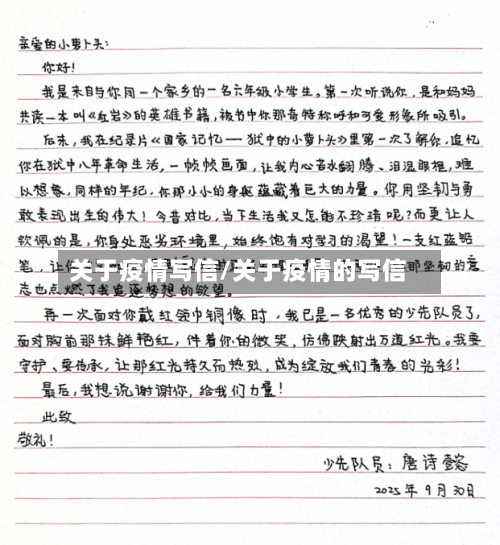 亲爱的小萝卜头:
你好!
我是来自与你同一个家乡的一名六年级小学生。第一次听说你,是和妈妈
共读一本叫《红岩》的英雄书籍,被书中你那奇特称呼和可爱形象所吸引。
后来,我在纪录片《国家记忆—狱中的小萝卜头》里第一次了解你,追忆
你在狱中八年革命生活,一帧帧画面,让我内心百水翻腾、泪湿眼框,难
以想象,同样的年纪,你那小小的身躯蕴藏着巨大的力量。你用坚韧与勇
敢表现出生的伟大!今昔对比,当下生活我又怎能不珍惜呢?而更让人
钦佩的是,你身处恶劣环境里,始终饱有对学习的渴望!一支红蓝铅
笔,让你
关于疫情写信/关于疫情的写信
那坚韧的意
志也点燃了我追逐梦想的欲望。
再一次面对你戴红领巾铜像时,我已是一名优秀的少先队员了,
面对胸前那抹鲜艳红,伴着你的微笑,仿佛映射出万道红光。我要
守护、要传承,让那红光持久而热烈,成为绽放我们青春的光彩!
最后,我想说谢谢你,给我们力量!
此致
敬礼!
少先队员:唐诗懿
2025年9月30日